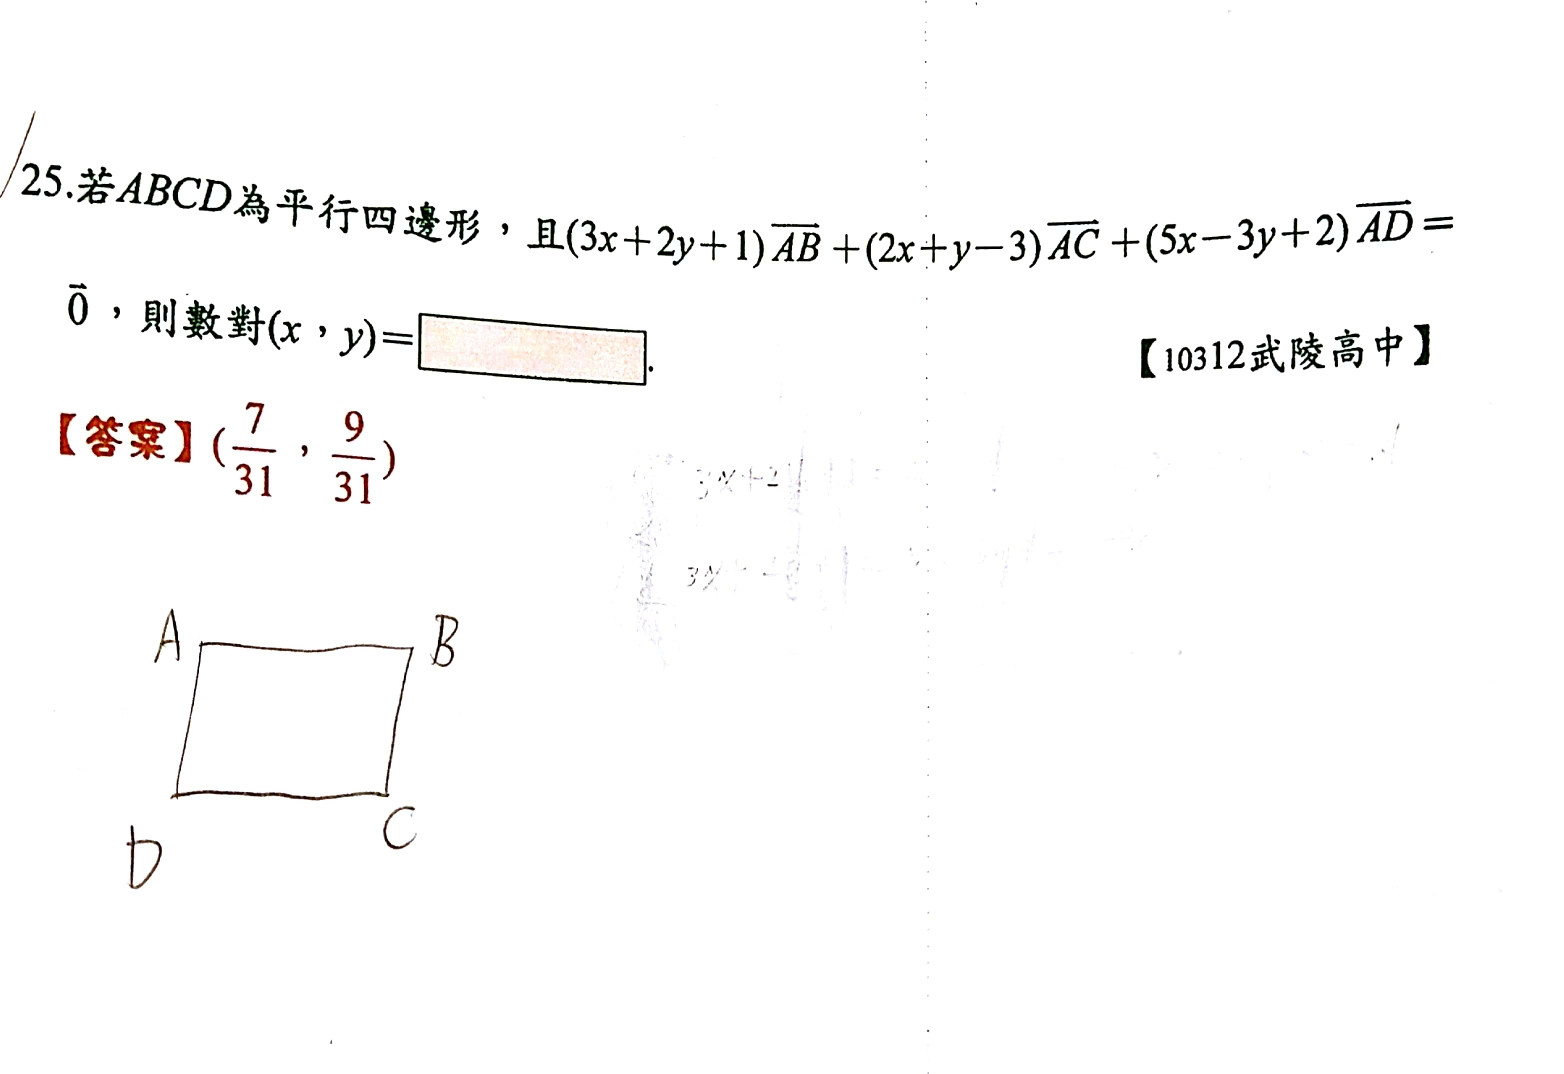 25.若ABCD為平行四邊形，且(3x+2y+1)\overline{AB}+(2x+y-3)\overline{AC}+(5x-3y+2)\overline{AD}=
\vec{0}，則數對(x，y)= .
【10312武陵高中】
【答案】(7/31，9/31)
3x+2y
A B
D C